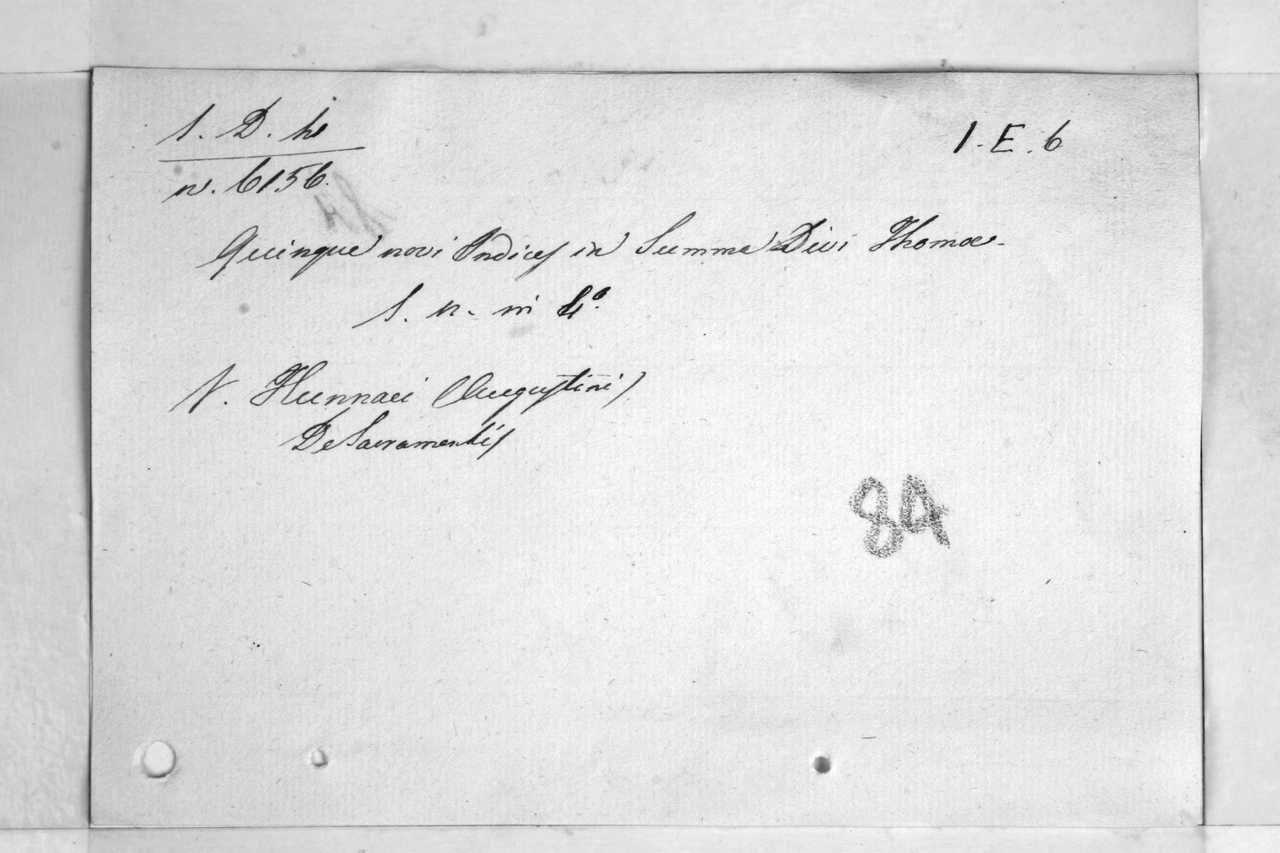 1. D. hi
1. E. 6
n. 6156.
Quinque novi Indices in Summa Divi Thomae.
S. n. in 4º.
V. Hunnaei (Augustini)
De Sacramentis
84